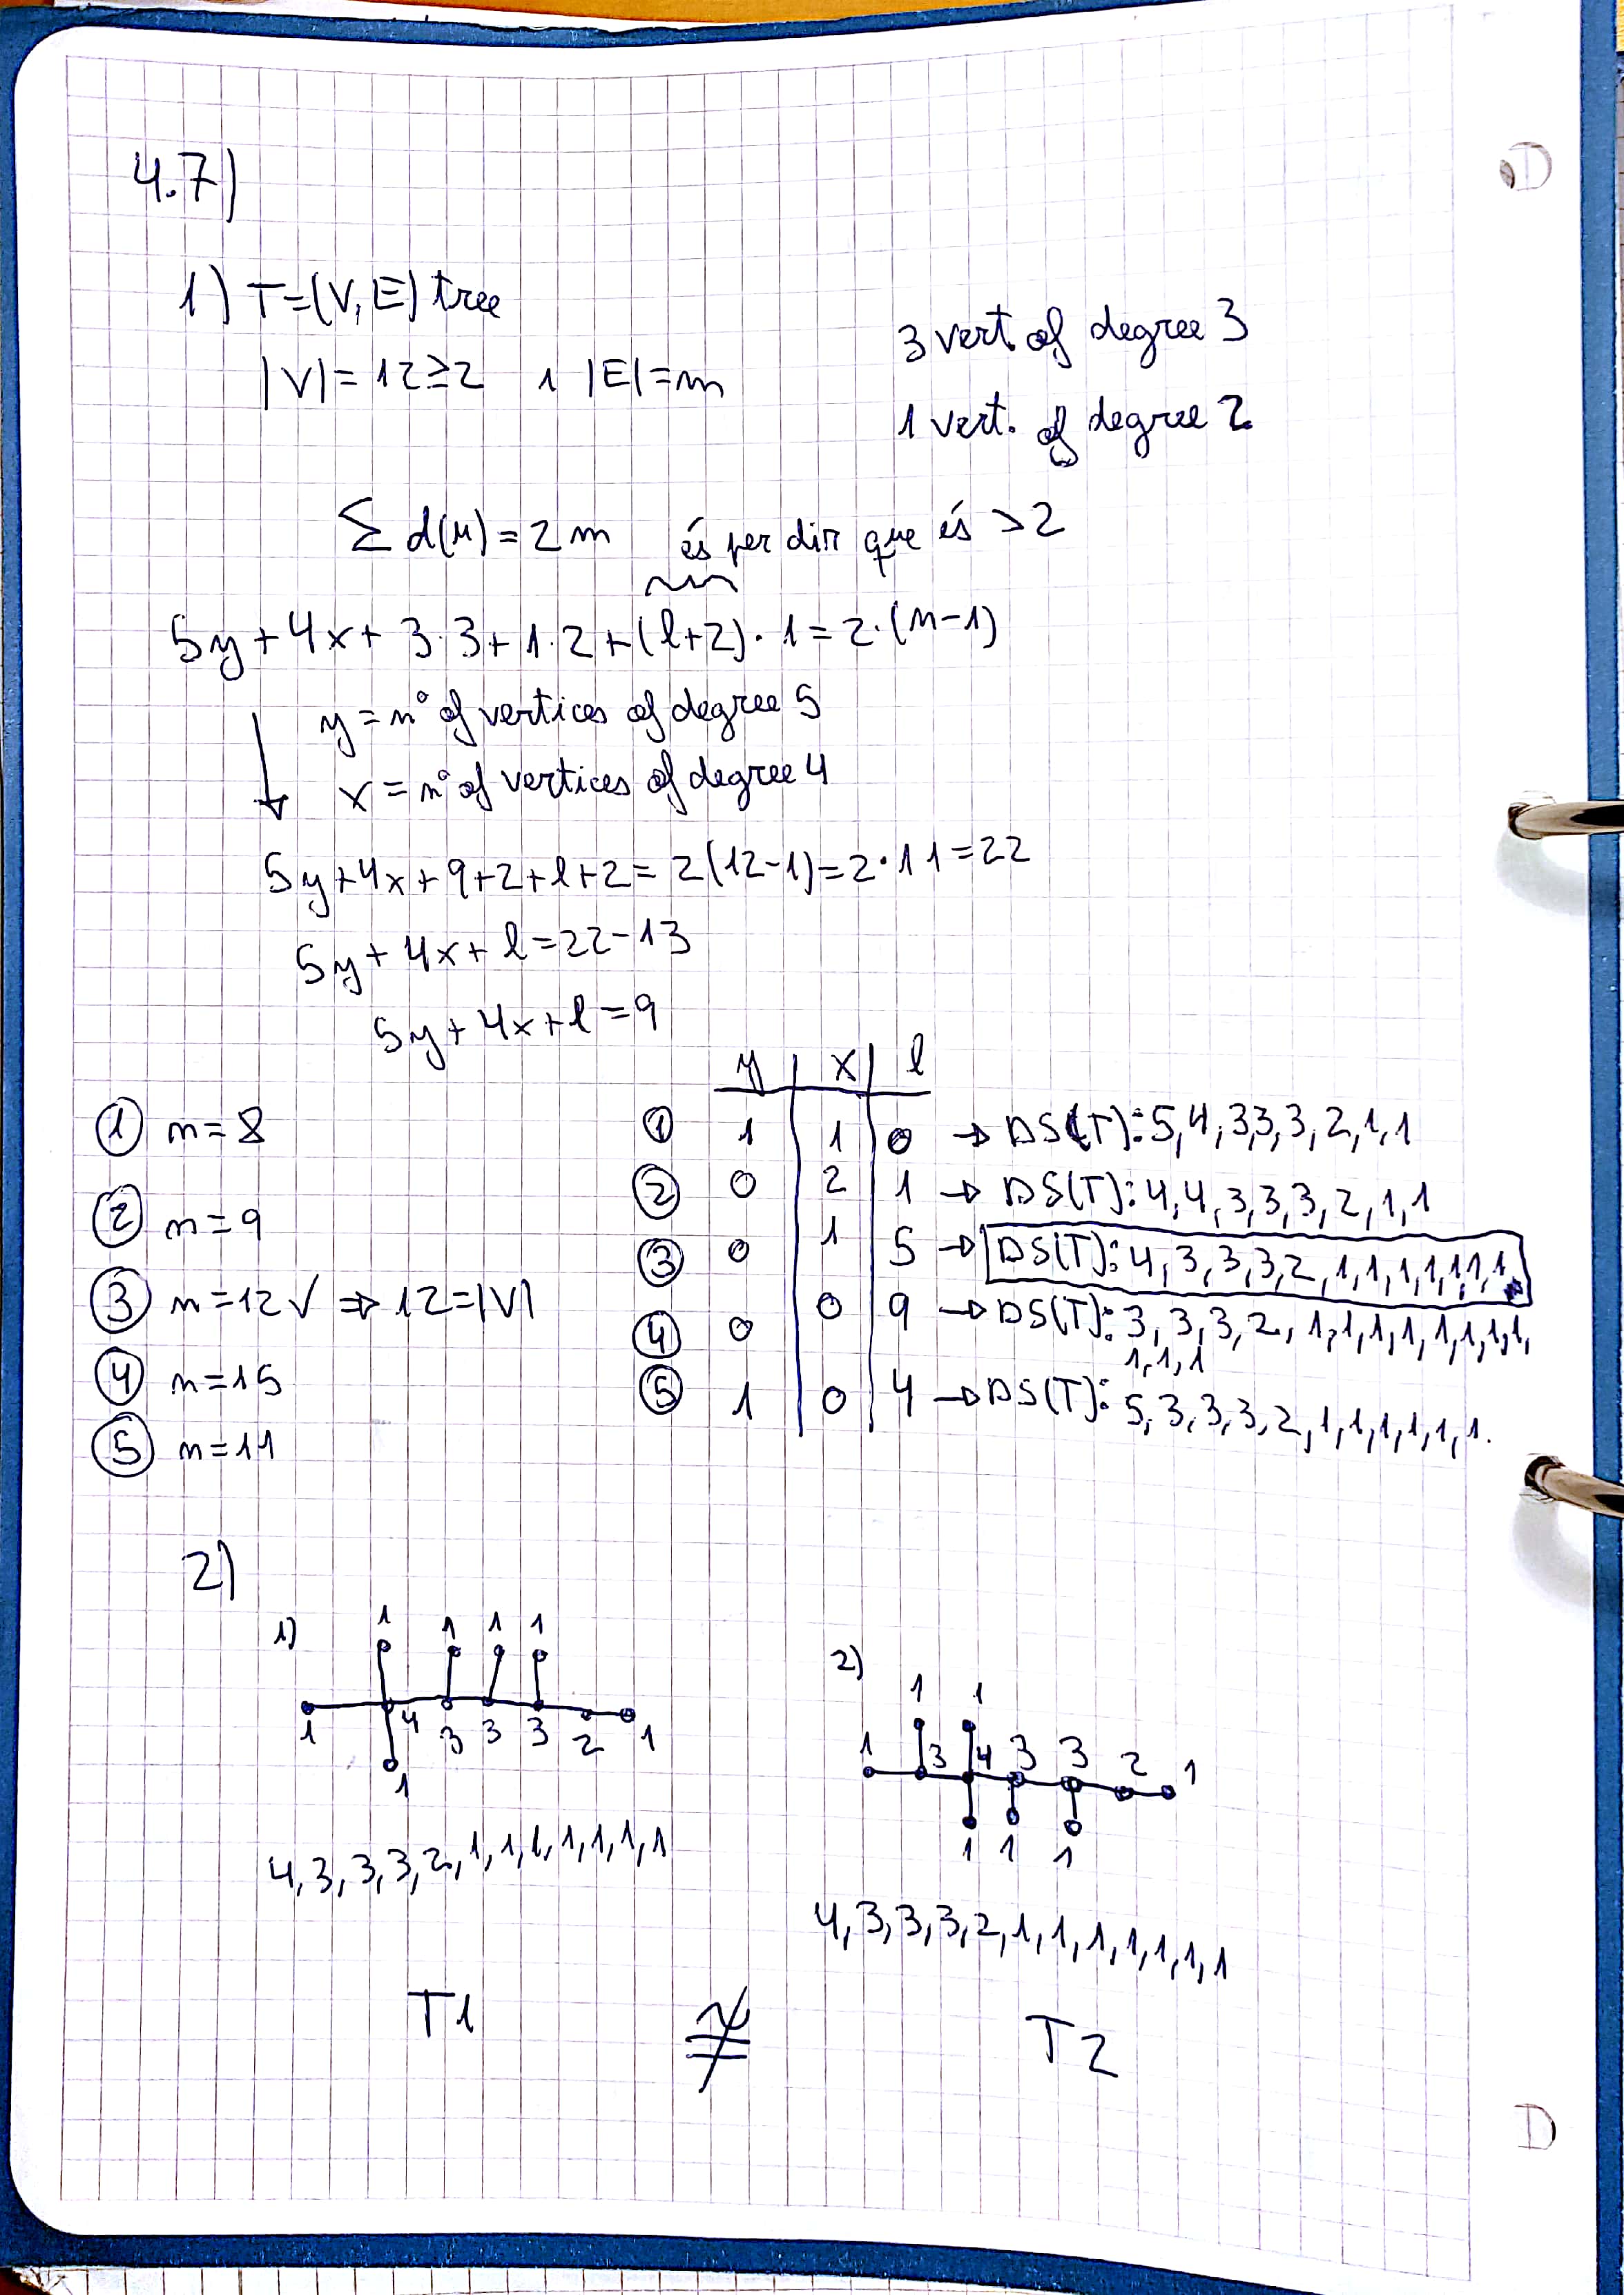 4.7)
1) T=(V,E) tree
|V|= 12≥2 i |E|=m
3 vert. of degree 3
1 vert. of degree 2
Σ d(u) = 2m és per dir que és >2
5y + 4x + 3·3 + 1·2 + (l+2)·1 = 2·(n-1)
y = nº of vertices of degree 5
x = nº of vertices of degree 4
5y+4x+9+2+l+2 = 2(12-1)=2·11=22
5y + 4x + l = 22-13
5y + 4x + l = 9
y x l
① n=8
② n=9
③ n=12 ✓ ⇒ 12=|V|
④ n=15
⑤ n=11
① 1 1 0 → DS(T): 5,4,3,3,3,2,1,1
② 0 2 1 → DS(T): 4,4,3,3,3,2,1,1
③ 0 1 5 → DS(T): 4,3,3,3,2,1,1,1,1,1,1,1
④ 0 0 9 → DS(T): 3,3,3,2,1,1,1,1,1,1,1,1,
1,1,1
⑤ 1 0 4 → DS(T): 5,3,3,3,2,1,1,1,1,1,1.
2)
1)
1 1 1 1
1 4 3 3 3 2 1
1
4,3,3,3,2,1,1,1,1,1,1,1
2)
1 1
1 3 4 3 3 2 1
1 1 1
4,3,3,3,2,1,1,1,1,1,1,1
T1 ≇ T2